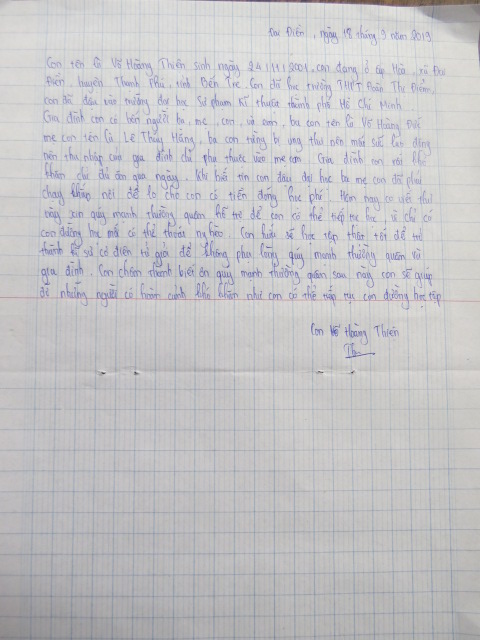 Đại Điền, ngày 18 tháng 9 năm 2019
Con tên là Võ Hoàng Thiên sinh ngày 24/11/2001, con đang ở ấp Hòa, xã Đại
Điền, huyện Thạnh Phú, tỉnh Bến Tre. Con đã học trường THPT Đoàn Thị Điểm,
con đã đậu vào trường đại học Sư phạm Kĩ thuật thành phố Hồ Chí Minh.
Gia đình con có bốn người ba, mẹ, con, và em, ba con tên là Võ Hoàng
mẹ con tên là Lê Thúy Hằng, ba con từng bị ung thư nên mất sức lao động
nên thu nhập của gia đình chỉ phụ thuộc vào mẹ em. Gia đình con rất khó
khăn chỉ đủ ăn qua ngày. Khi biết tin con đậu đại học ba mẹ con đã phải
chạy khắp nơi để lo cho con có tiền đóng học phí. Hôm nay co viết thư
này xin quý mạnh thường quân hỗ trợ để con có thể tiếp tục học, vì chỉ có
con đường học mới có thể thoát nghèo. Con hứa sẽ học tập thật tốt để trở
thành kĩ sư cơ điện tử giỏi để không phụ lòng quý mạnh thường quân và
gia đình. Con chân thành biết ơn quý mạnh thường quân sau này con sẽ giúp
đỡ những người có hoàn cảnh khó khăn như con có thể tiếp tục con đường học tập
Con Võ Hoàng Thiên